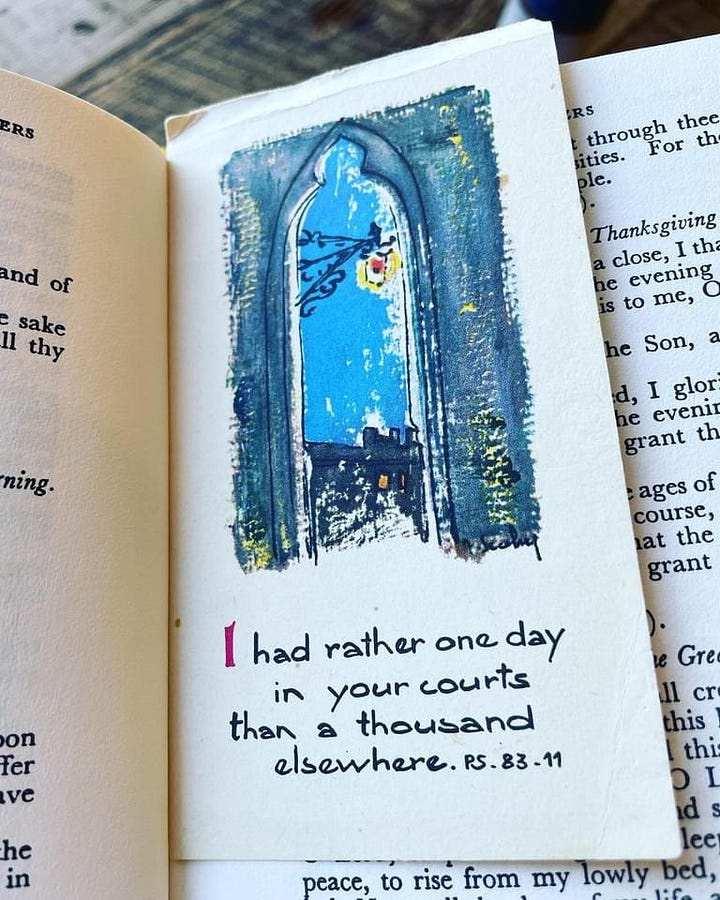 ERS
and of
e sake
ll thy
rning.
pon
ffer
ave
the
in
I had rather one day
in your courts
than a thousand
elsewhere. PS. 83-11
ERS
through thee
sities. For the
ple.
).
Thanksgiving
a close, I tha
he evening
is to me, O
he Son, a
d, I glori
he evenin
grant th
e ages of
course,
hat the
grant
).
e Gree
ll cre
this
this
O L
nd s
leep
peace, to rise from my lowly bed,